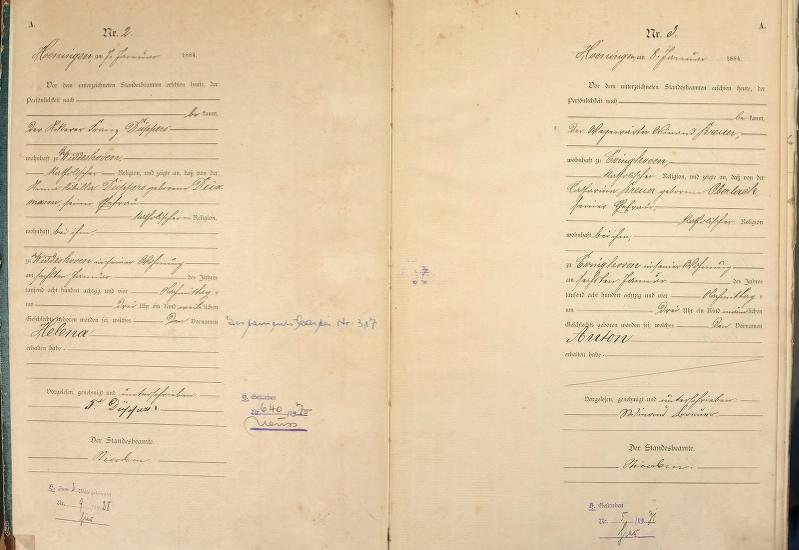 A.
Nr. 2.
Hoeningen am 7. Januar 1884.
Vor dem unterzeichneten Standesbeamten erschien heute, der
Persönlichkeit nach
be kannt,
der Ackerer Franz Düppers
wohnhaft zu Widdeshoven,
katholischer Religion, und zeigte an, daß von der
Düppers geborene
mann, seiner Ehefrau
katholischer Religion,
wohnhaft bei ihm,
zu Widdeshoven in seiner Wohnung
am sechsten Januar des Jahres
tausend acht hundert achtzig und vier Nachmittag-
um Drei Uhr ein Kind weiblichen
Geschlechts geboren worden sei, welches den Vornamen
Helena
erhalten habe.
Vorgelesen, genehmigt und unterschrieben
Der Standesbeamte.
Nr. 9
Nr. 317
H. Gestorben
Nr. 640
Neuss
A.
Nr. 3.
Hoeningen am 8. Januar 1884.
Vor dem unterzeichneten Standesbeamten erschien heute, der
Persönlichkeit nach
be kannt,
der Wegewärter Winand Kreuer,
wohnhaft zu Evinghoven,
katholischer Religion, und zeigte an, daß von der
Catharina Kreuer geborene Oberlack
seiner Ehefrau,
katholischer Religion
wohnhaft bei ihm,
zu Evinghoven in seiner Wohnung
am sechsten Januar des Jahres
tausend acht hundert achtzig und vier Nachmittag-
um Drei Uhr ein Kind männlichen
Geschlechts geboren worden sei, welches den Vornamen
Anton
erhalten habe.
Vorgelesen, genehmigt und unterschrieben
Winand
Der Standesbeamte.
H. Gestorben
Nr.